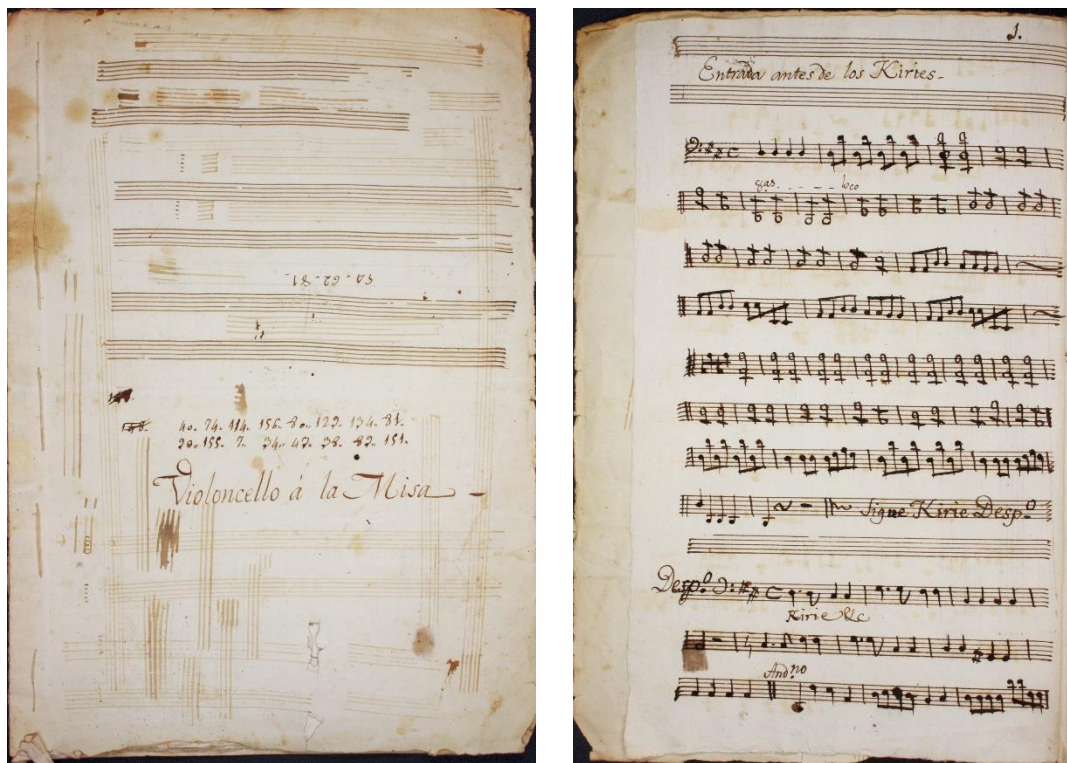 40. 74. 114. 156. 80. 129. 134. 81.
20. 155. 7. 34. 47. 38. 82. 151.
Violoncello á la Misa
1.
Entrada antes de los Kiries.
8as. loco
Sigue Kirie Desp.º
Desp.º
Kirie &c
And.no